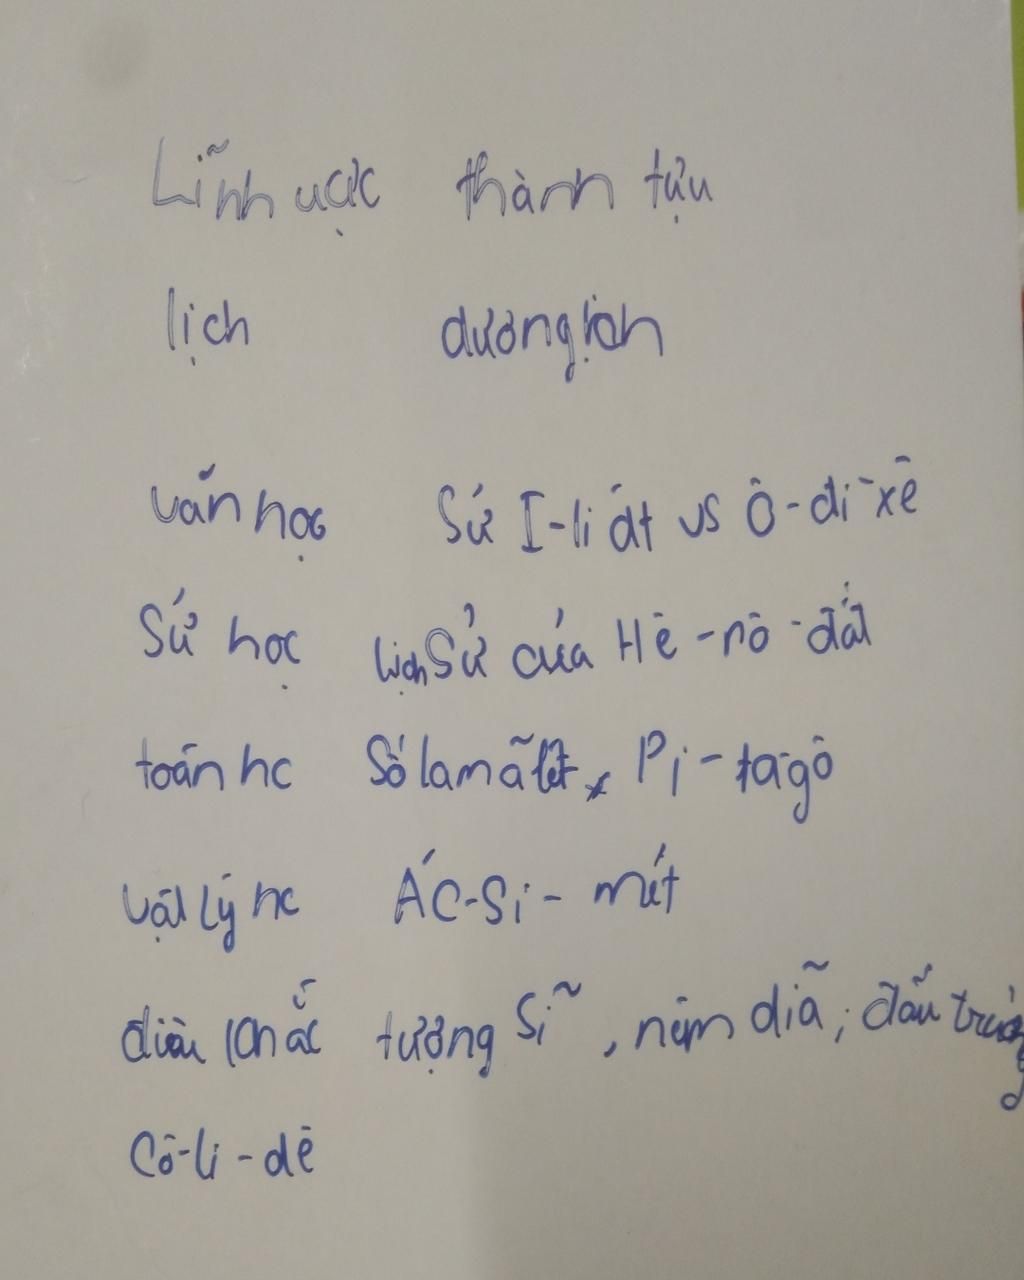 Lĩnh vực thành tựu
lịch dương lịch
văn học Sứ I-li át vs Ô-đi-xê
Sử học lịch Sử của Hê-rô-đốt
toán hc Số la mã, Pi-ta-gô
vật lý hc Ác-Si-mét
điêu khắc tượng Sĩ, ném dĩa, đấu trường
Cô-li-dê